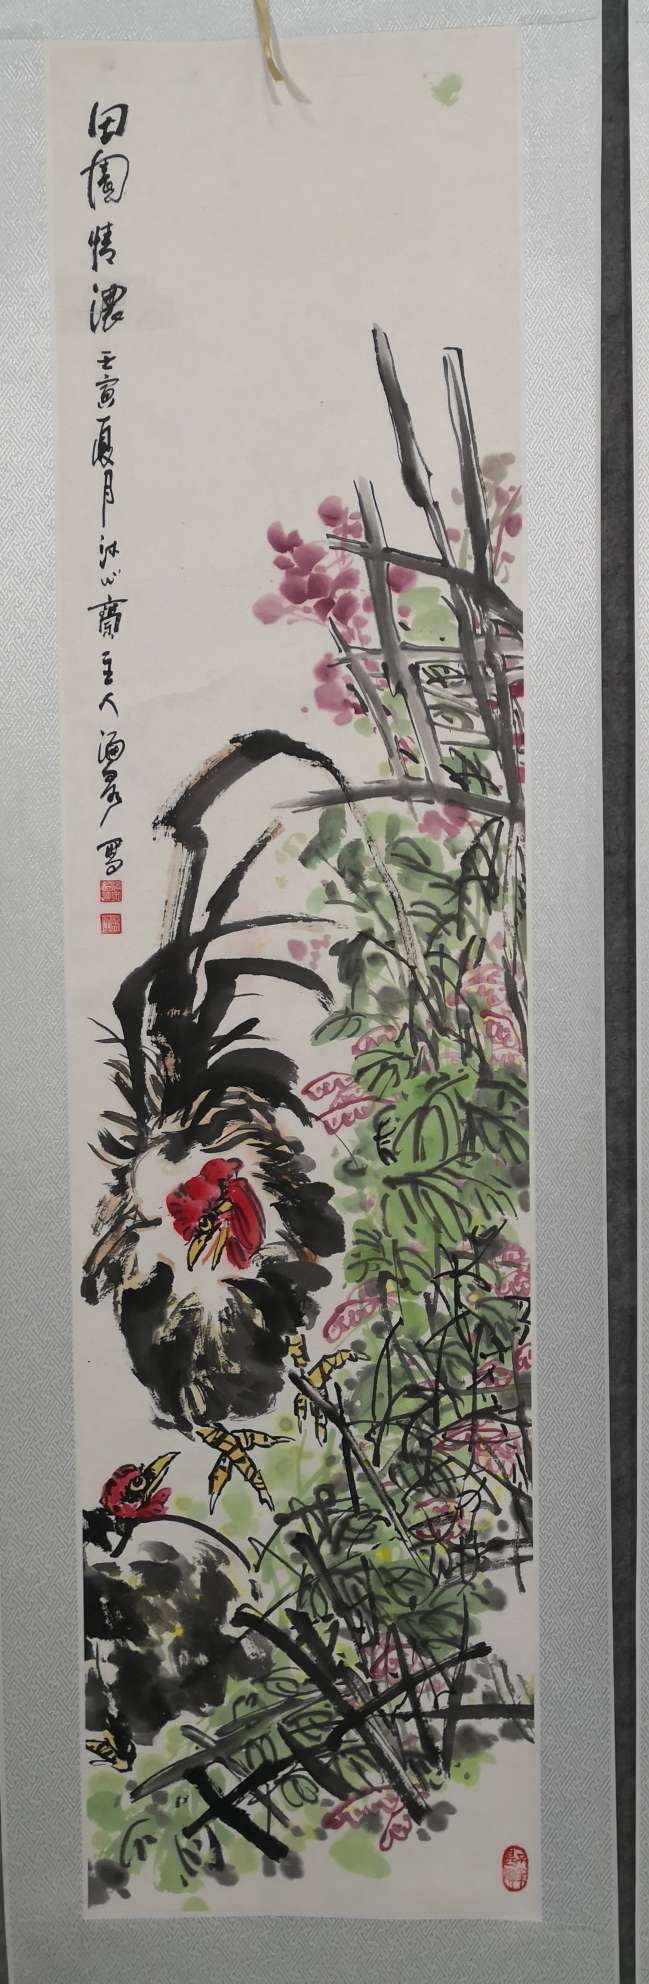 田園情濃
壬寅夏月沐心齋主人海泉寫